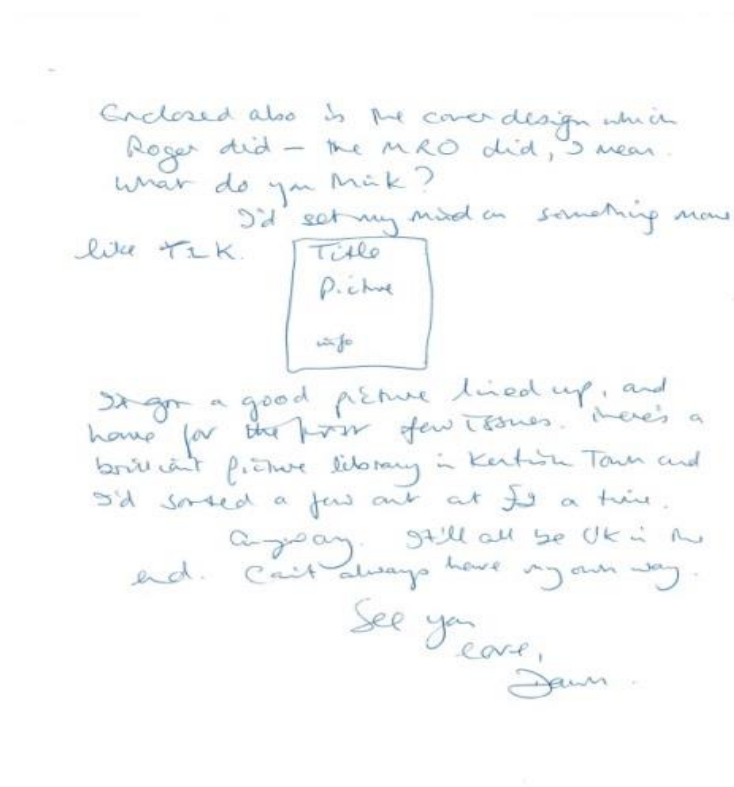 Enclosed also is the cover design which
Roger did – the MRO did, I mean.
What do you think?
I'd set my mind on something more
like TLK.
Title
Picture
info
I'd got a good picture lined up, and
have for the first few issues. There's a
brilliant picture library in Kentish Town and
I'd sorted a few out at a time.
Anyway. It'll all be OK in the
end. Can't always have my own way.
See you
love,
Dawn.